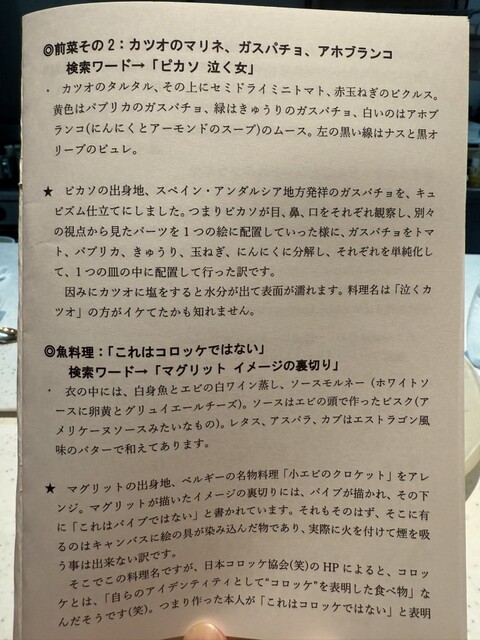 ◎前菜その2：カツオのマリネ、ガスパチョ、アホブランコ
検索ワード→「ピカソ 泣く女」
・ カツオのタルタル、その上にセミドライミニトマト、赤玉ねぎのピクルス。
黄色はパプリカのガスパチョ、緑はきゅうりのガスパチョ、白いのはアホブ
ランコ(にんにくとアーモンドのスープ)のムース。左の黒い線はナスと黒オ
リーブのピュレ。
★ ピカソの出身地、スペイン・アンダルシア地方発祥のガスパチョを、キュ
ビズム仕立てにしました。つまりピカソが目、鼻、口をそれぞれ観察し、別々
の視点から見たパーツを１つの絵に配置していった様に、ガスパチョをトマ
ト、パプリカ、きゅうり、玉ねぎ、にんにくに分解し、それぞれを単純化し
て、１つの皿の中に配置して行った訳です。
因みにカツオに塩をすると水分が出て表面が濡れます。料理名は「泣くカ
ツオ」の方がイケてたかも知れません。
◎魚料理：「これはコロッケではない」
検索ワード→「マグリット イメージの裏切り」
・ 衣の中には、白身魚とエビの白ワイン蒸し、ソースモルネー（ホワイトソ
ースに卵黄とグリュイエールチーズ)。ソースはエビの頭で作ったビスク(ア
メリケーヌソースみたいなもの)。レタス、アスパラ、カブはエストラゴン風
味のバターで和えてあります。
★ マグリットの出身地、ベルギーの名物料理「小エビのクロケット」をアレ
ンジ。マグリットが描いたイメージの裏切りには、パイプが描かれ、その下
に「これはパイプではない」と書かれています。それもそのはず、そこに有
るのはキャンバスに絵の具が染み込んだ物であり、実際に火を付けて煙を吸
う事は出来ない訳です。
そこでこの料理名ですが、日本コロッケ協会(笑)のHPによると、コロッ
ケとは、「自らのアイデンティティとして“コロッケ”を表明した食べ物」な
んだそうです(笑)。つまり作った本人が「これはコロッケではない」と表明